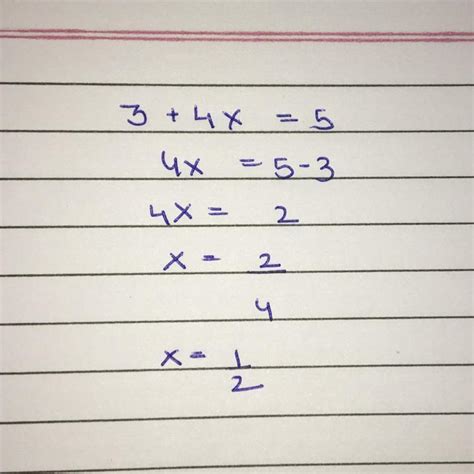 3 + 4x = 5
4x = 5-3
4x = 2
x = 2/4
x = 1/2